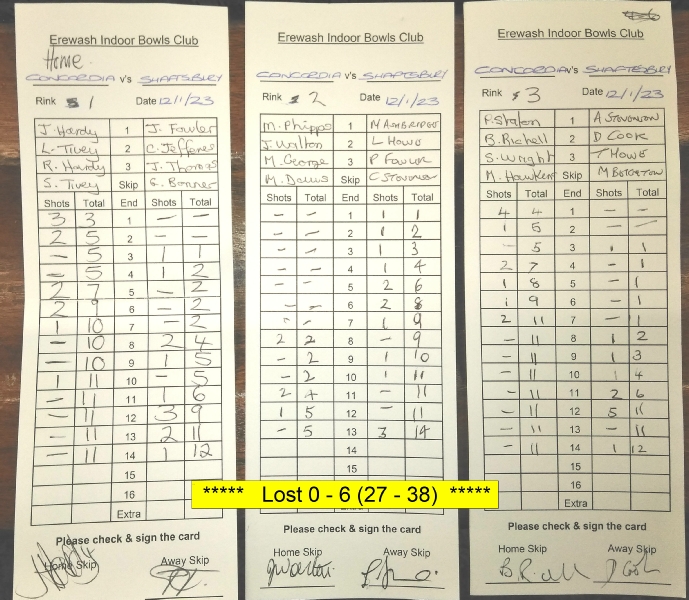 Erewash Indoor Bowls Club
Home
CONCORDIA v's SHAFTSBURY
Rink 1 Date 12/1/23
J. Hardy 1 J. Fowler
L. Tivey 2 C. Jeffries
R. Hardy 3 J. Thomas
S. Tivey Skip G. Bonner
Shots Total End Shots Total
3 3 1 – –
2 5 2 – –
– 5 3 1 1
– 5 4 1 2
2 7 5 – 2
2 9 6 – 2
1 10 7 – 2
– 10 8 2 4
– 10 9 1 5
1 11 10 – 5
– 11 11 1 6
– 11 12 3 9
– 11 13 2 11
– 11 14 1 12
15
16
Extra
Please check & sign the card
Home Skip Away Skip
Erewash Indoor Bowls Club
CONCORDIA v's SHAFTESBURY
Rink 2 Date 12/1/23
M. Phipps 1
J. Walton 2 L Howe
M. George 3 P Fowler
M. Davis Skip C Stevenson
Shots Total End Shots Total
– – 1 1 1
– – 2 1 2
– – 3 1 3
– – 4 1 4
– – 5 2 6
– – 6 2 8
– – 7 1 9
2 2 8 – 9
– 2 9 1 10
– 2 10 1 11
2 4 11 – 11
1 5 12 – 11
– 5 13 3 14
14
15
Please check & sign the card
Home Skip Away Skip
Erewash Indoor Bowls Club
CONCORDIA v's SHAFTESBURY
Rink 3 Date 12/1/23
P. Staton 1 A STEVENSON
B. Richell 2 D COOK
S. Wright 3 T HOWE
M. Hawken Skip M
Shots Total End Shots Total
4 4 1 – –
1 5 2 – –
- 5 3 1 1
2 7 4 – 1
1 8 5 – 1
1 9 6 – 1
2 11 7 – 1
– 11 8 1 2
– 11 9 1 3
– 11 10 1 4
– 11 11 2 6
– 11 12 5 11
– 11 13 – 11
– 11 14 1 12
15
16
Extra
Please check & sign the card
Home Skip Away Skip
***** Lost 0 - 6 (27 - 38) *****